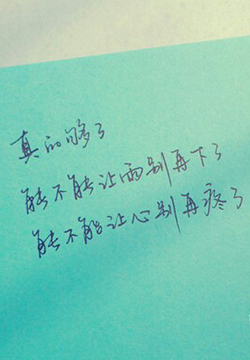 真的够了
能不能让雨别再下了
能不能让心别再疼了